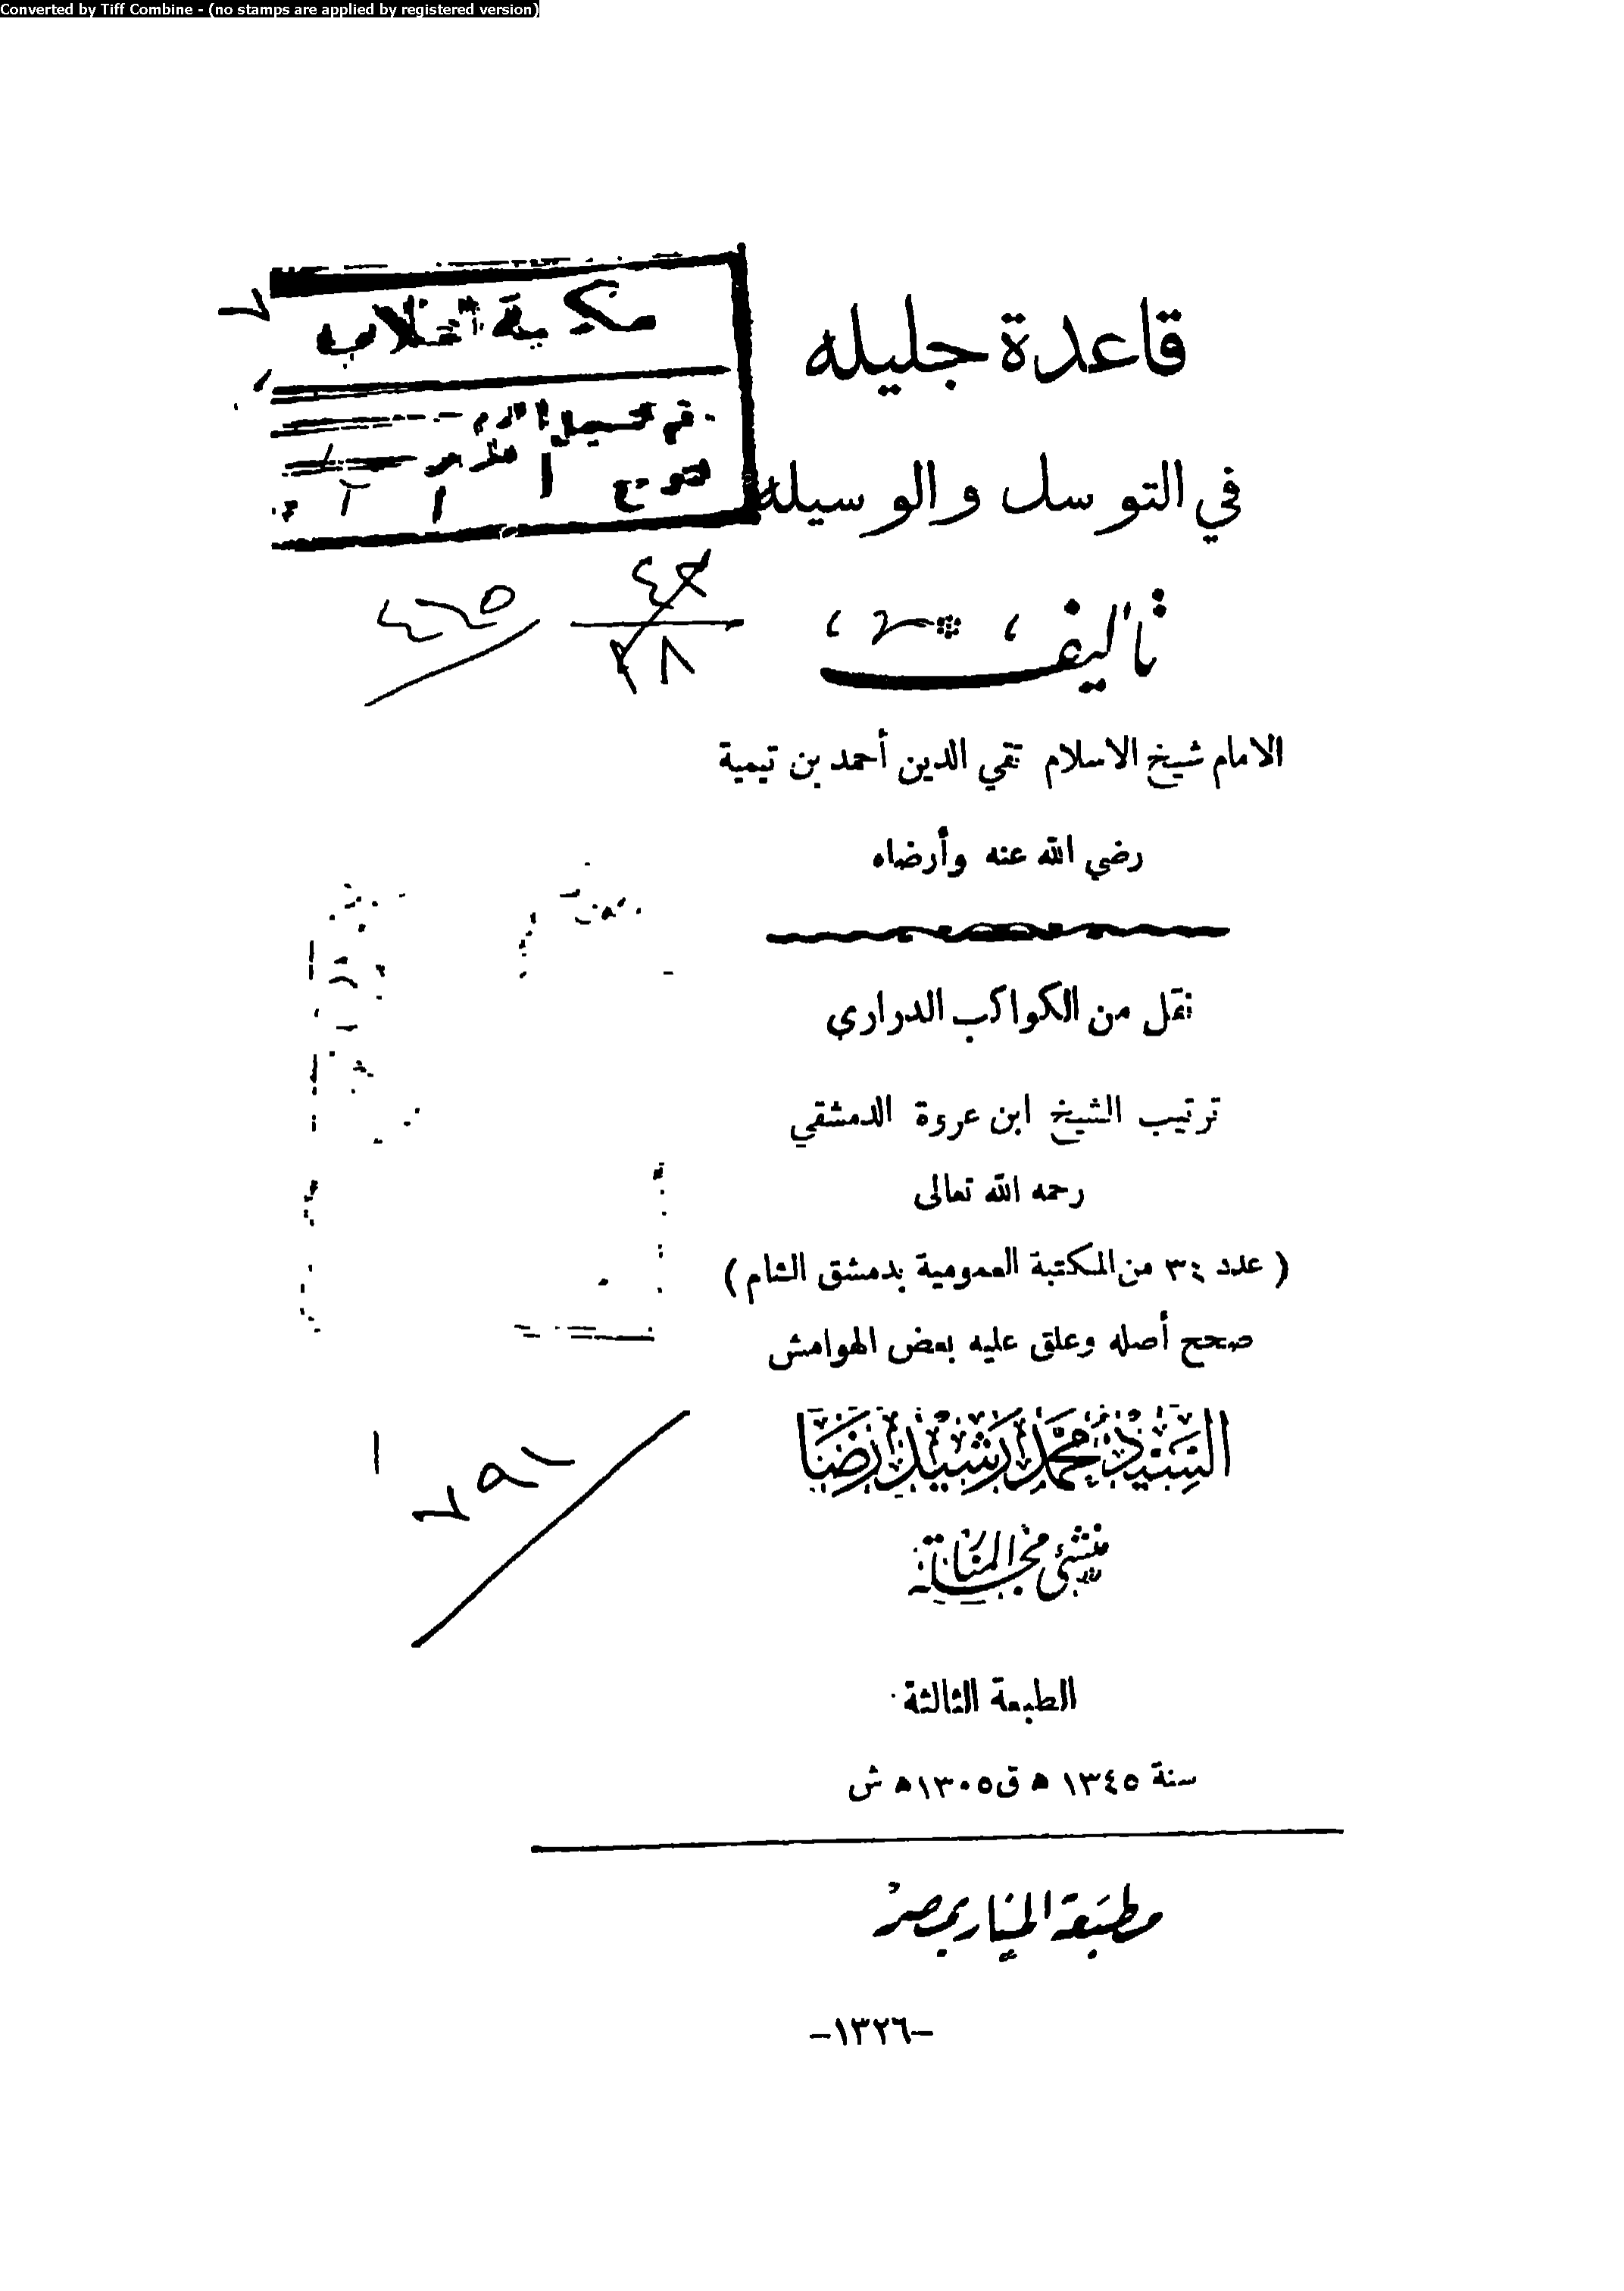 Converted by Tiff Combine - (no stamps are applied by registered version)
قاعدة جليله
في التوسل والوسيله
تأليف
الامام شيخ الاسلام تقي الدين أحمد بن تيمية
رضي الله عنه وأرضاه
نقل من الكواكب الدراري
ترتيب الشيخ ابن عروة الدمشقي
رحمه الله تعالى
( عدد ٣٤ من المكتبة العمومية بدمشق الشام )
صحح أصله وعلق عليه بعض الهوامش
السيد محمد رشيد رضا
منشئ مجلة المنار
الطبعة الثالثة
سنة ١٣٤٥ ه ق ١٣٠٥ ه ش
مطبعة المنار بمصر
-١٣٢٦-
مكتبة